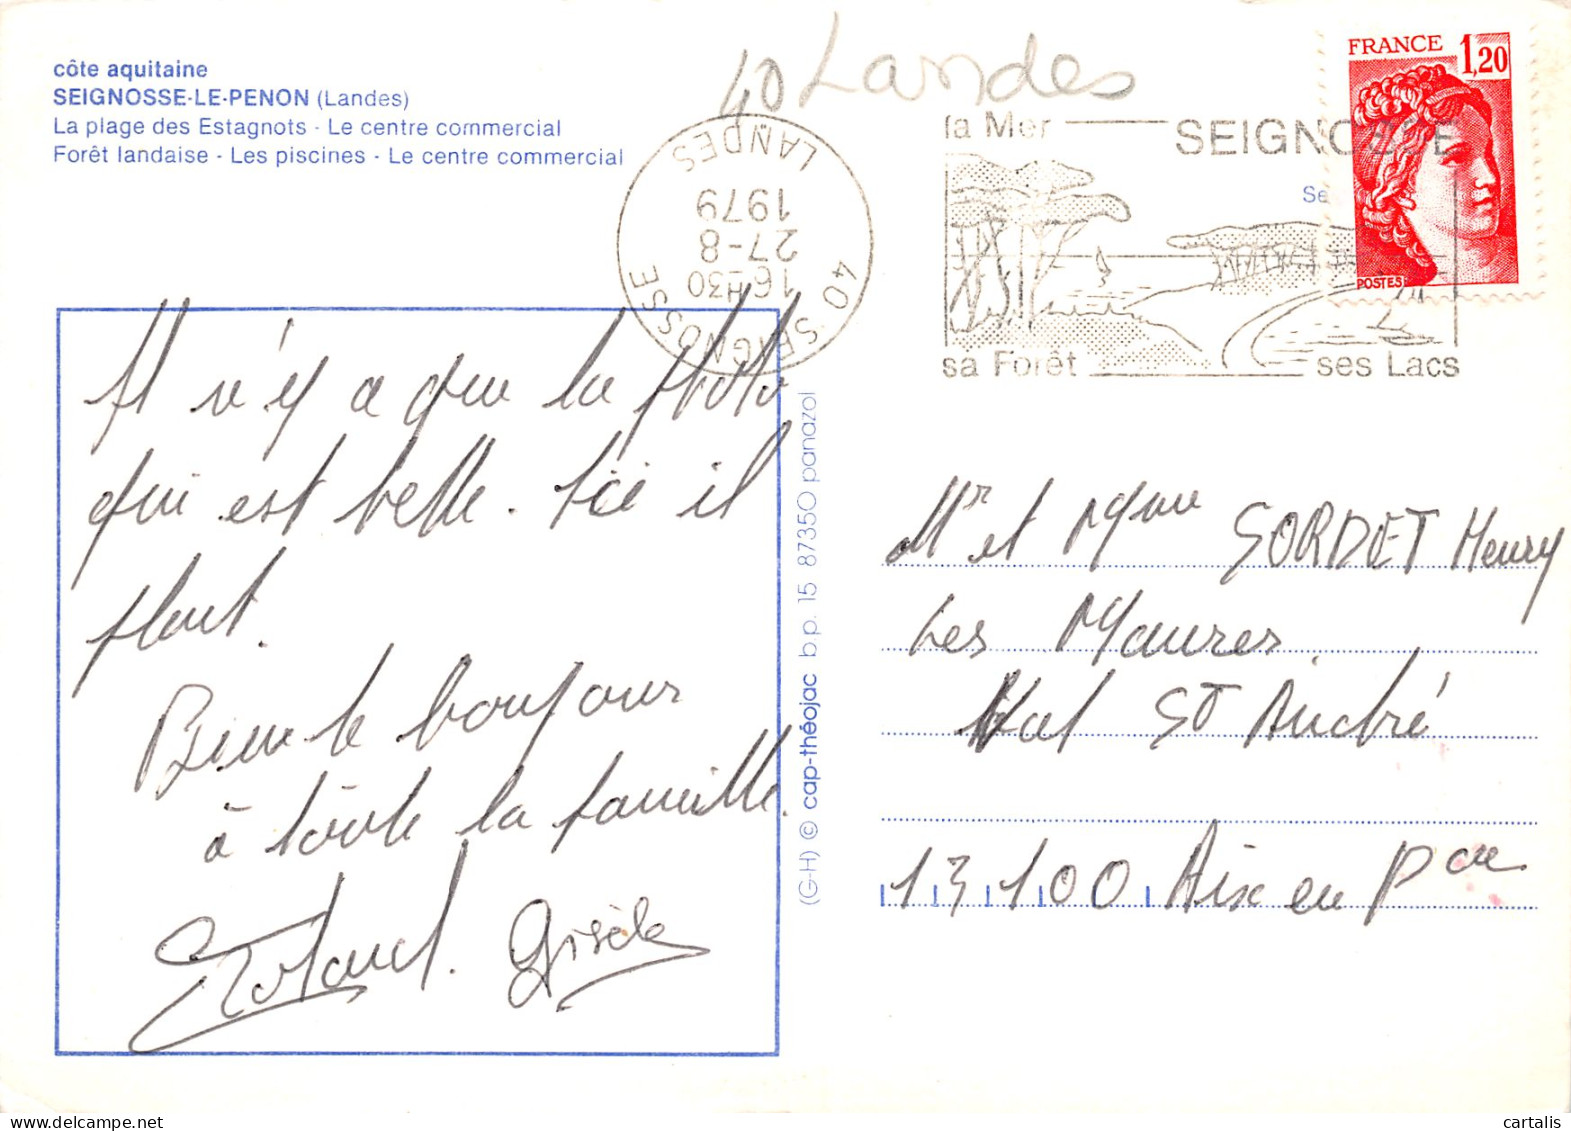 côte aquitaine
SEIGNOSSE-LE-PENON (Landes)
La plage des Estagnots - Le centre commercial
Forêt landaise - Les piscines - Le centre commercial
40 Landes
40 SEIGNOSSE
16H30
27-8
1979
LANDES
la Mer
SEIGNOSSE
sa Forêt
ses Lacs
FRANCE 1,20
POSTES
Se
Il n'y a que la photo
qui est belle. Ici il
pleut.
Bien le bonjour
à toute la famille.
Roland. Gisèle
(G-H) © cap-théojac b.p. 15 87350 panazol
Mr et Mme SORDET Henry
Les Maures.
Val St André
13100 Aix en Pce
cartalis